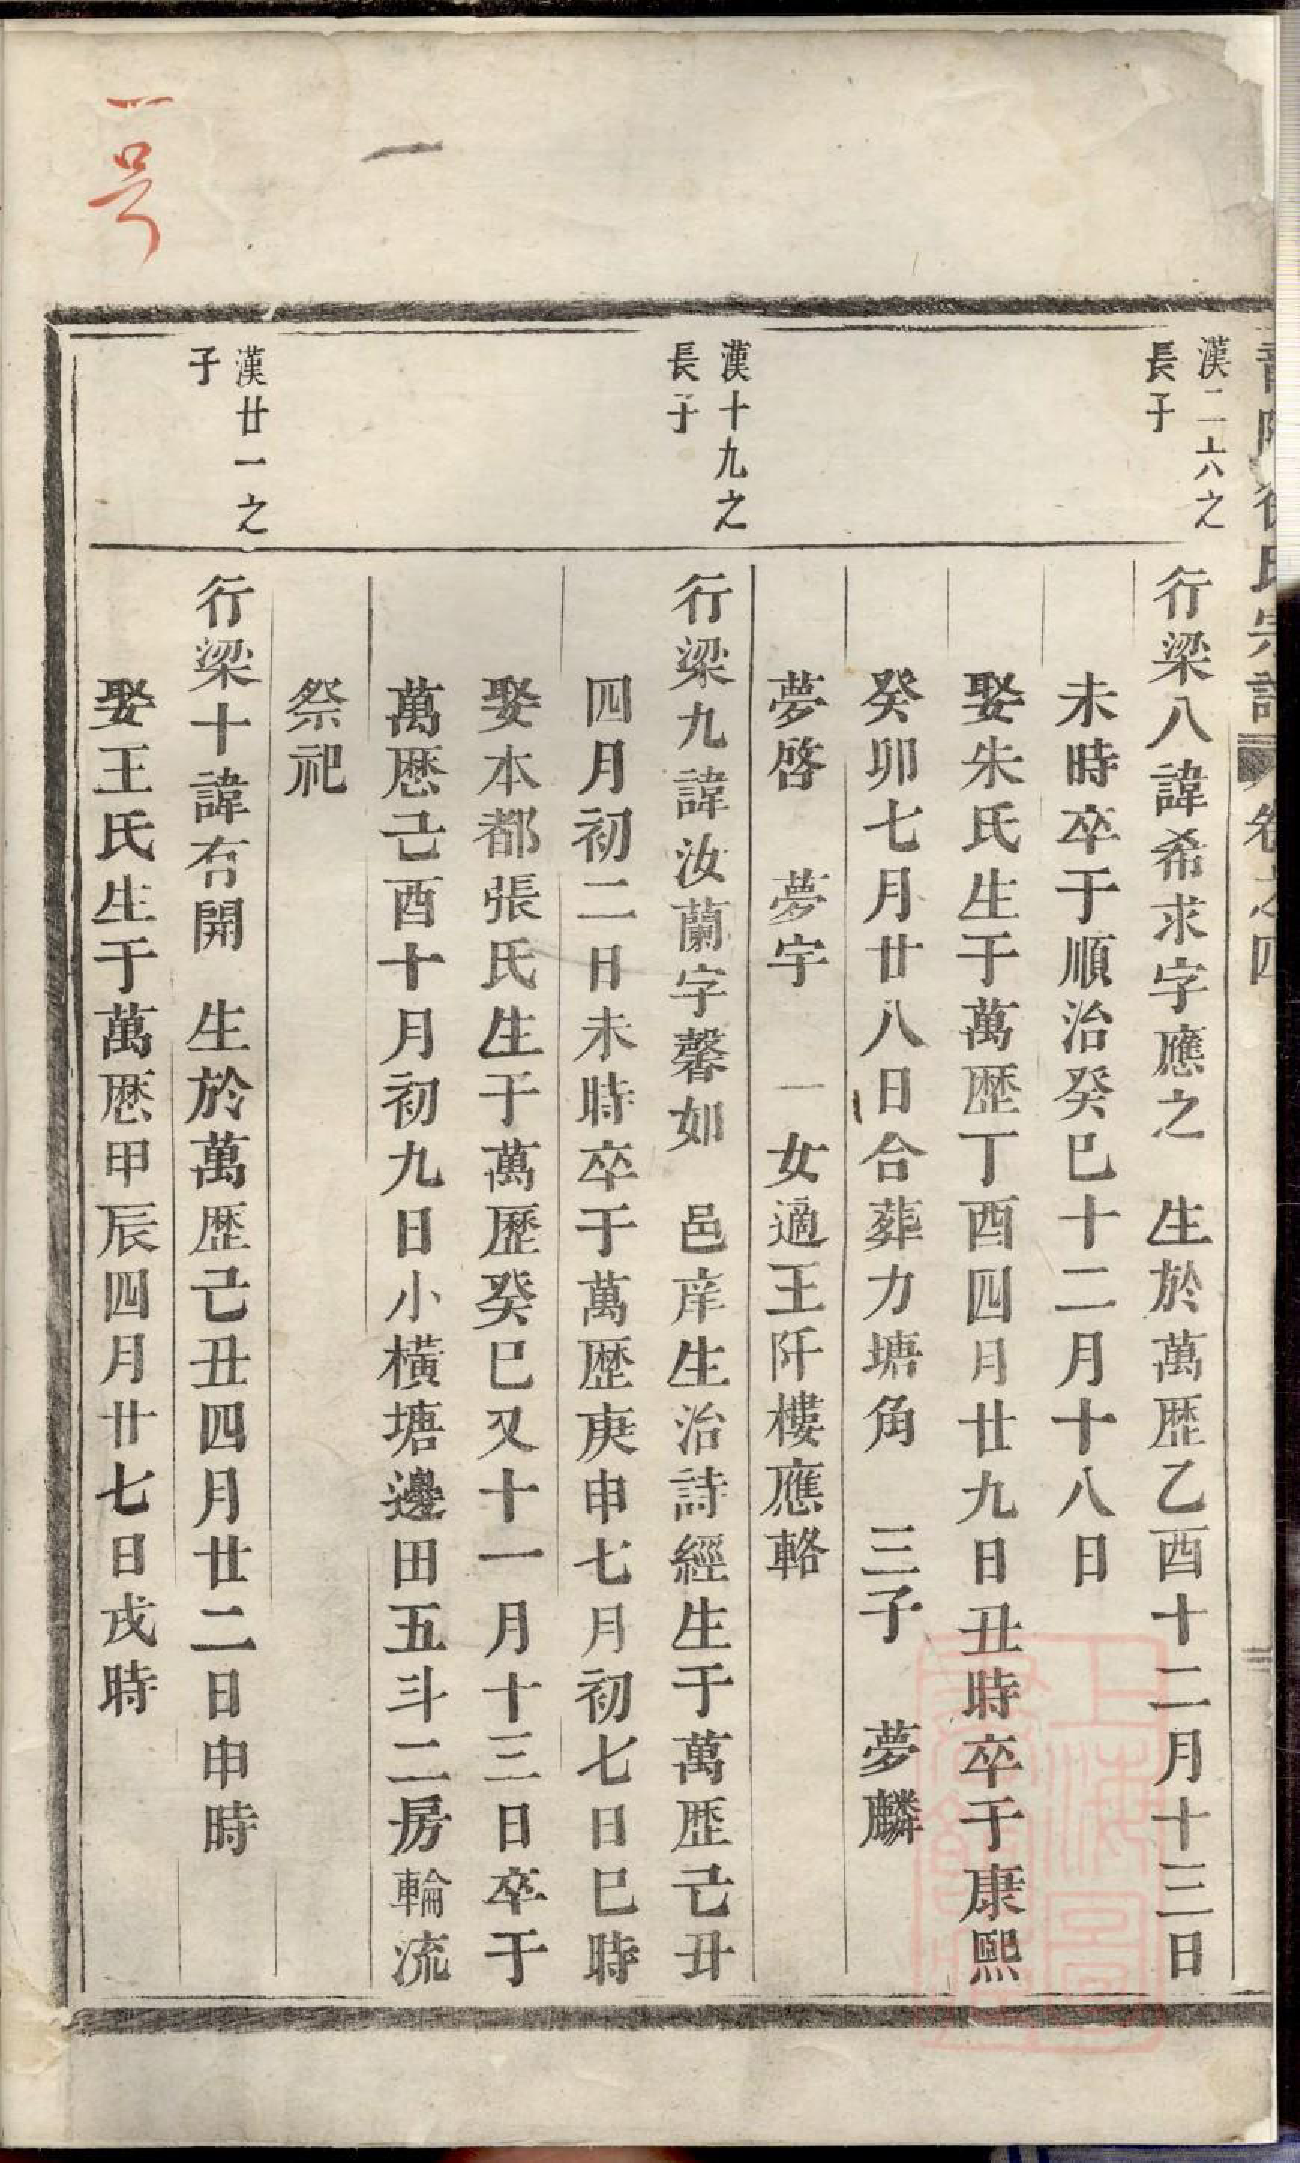 漢二六之
長子
行梁八諱希求字應之　生於萬歷乙酉十二月十三日
未時卒于順治癸巳十二月十八日
娶朱氏生于萬歷丁酉四月廿九日丑時卒于康熙
癸卯七月廿八日合葬力塘角　三子　夢麟
夢啓　夢宇　一女適王阡樓應輅
漢十九之
長子
行梁九諱汝蘭字馨如　邑庠生治詩經生于萬歷己丑
四月初二日未時卒于萬歷庚申七月初七日巳時
娶本都張氏生于萬歷癸巳又十一月十三日卒于
萬歷己酉十月初九日小橫塘邊田五斗二房輪流
祭祀
漢廿一之
子
行梁十諱有開　生於萬歷己丑四月廿二日申時
娶王氏生于萬歷甲辰四月廿七日戌時
氏宗譜 卷之四
一
一号
上海圖